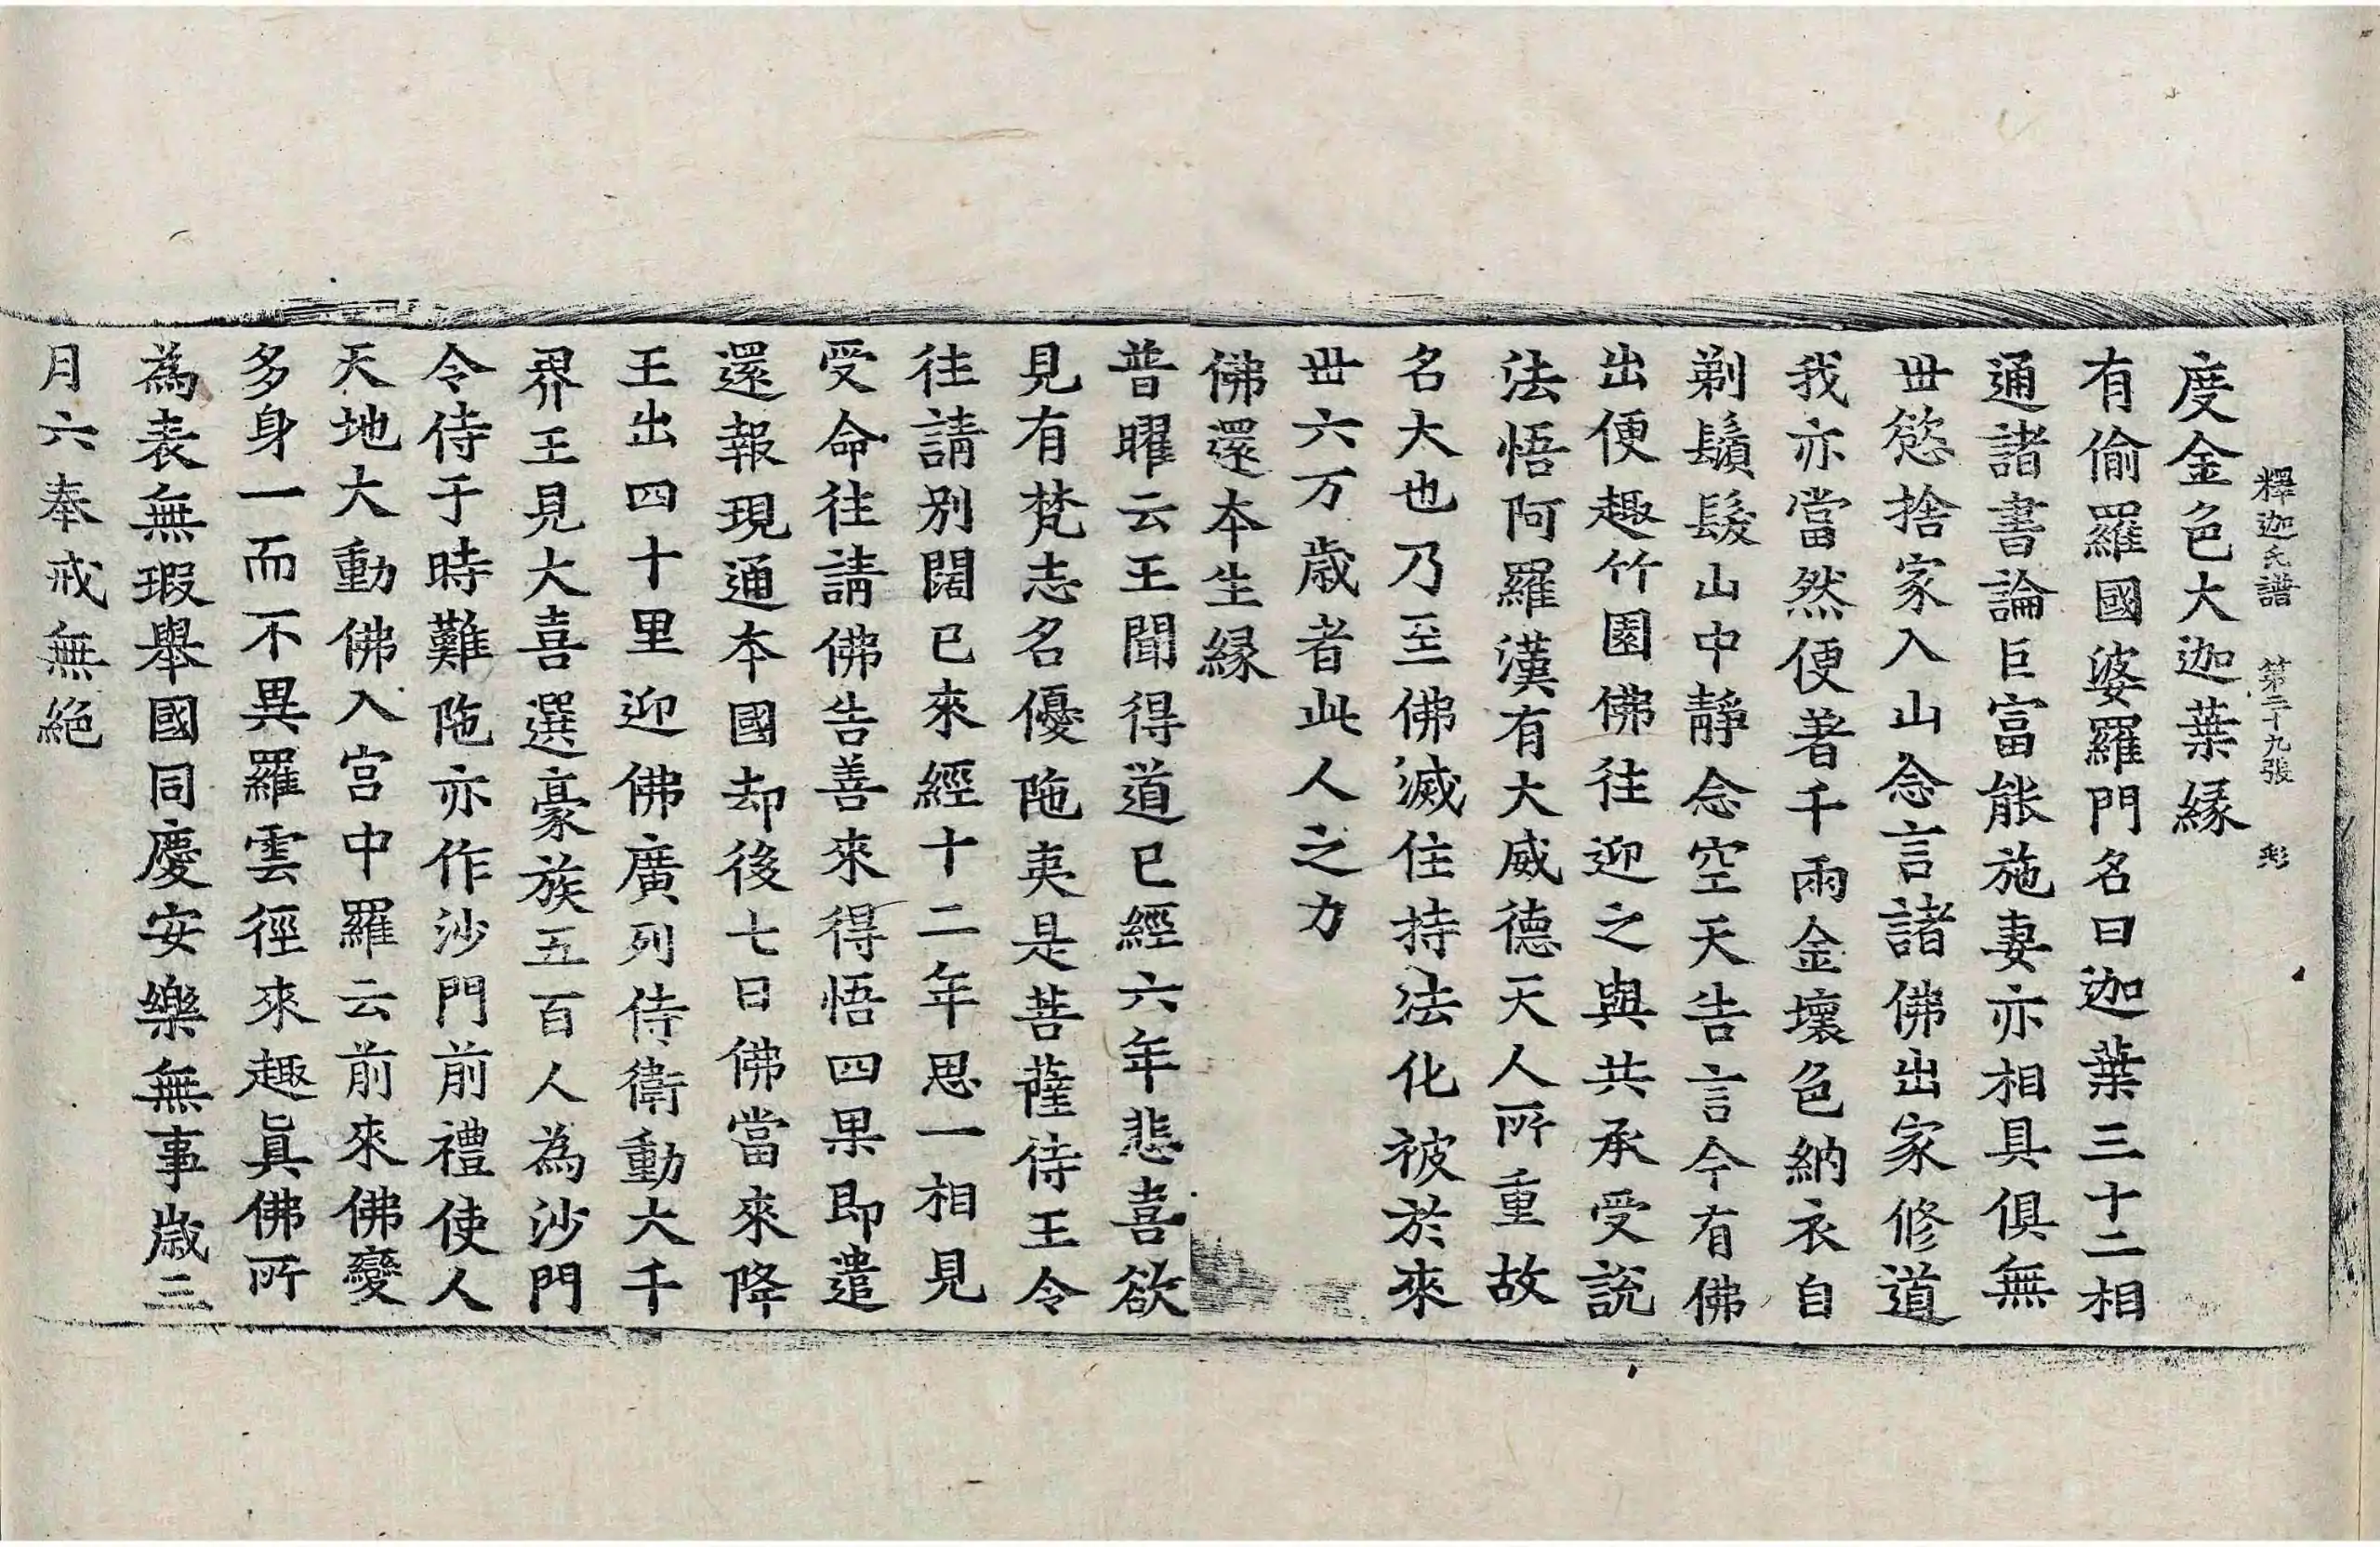 釋迦氏譜 第二十九張 彩
度金色大迦葉緣
有偷羅國婆羅門名曰迦葉三十二相
通諸書論巨富能施妻亦相具俱無
世慾捨家入山念言諸佛出家修道
我亦當然便著千兩金壞色納衣自
剃鬚髮山中靜念空天告言今有佛
出便趣竹園佛往迎之與共承受說
法悟阿羅漢有大威德天人所重故
名大也乃至佛滅住持法化被於來
世六万歲者此人之力
佛還本生緣
普曜云王聞得道已經六年悲喜欲
見有梵志名優陁夷是菩薩侍王令
往請別闊已來經十二年思一相見
受命往請佛告善來得悟四果即遣
還報現通本國却後七日佛當來降
王出四十里迎佛廣列侍衛動大千
界王見大喜選豪族五百人為沙門
令侍于時難陁亦作沙門前禮使人
天地大動佛入宮中羅云前來佛變
多身一而不異羅雲徑來趣眞佛所
為表無瑕舉國同慶安樂無事歲三
月六奉戒無絕